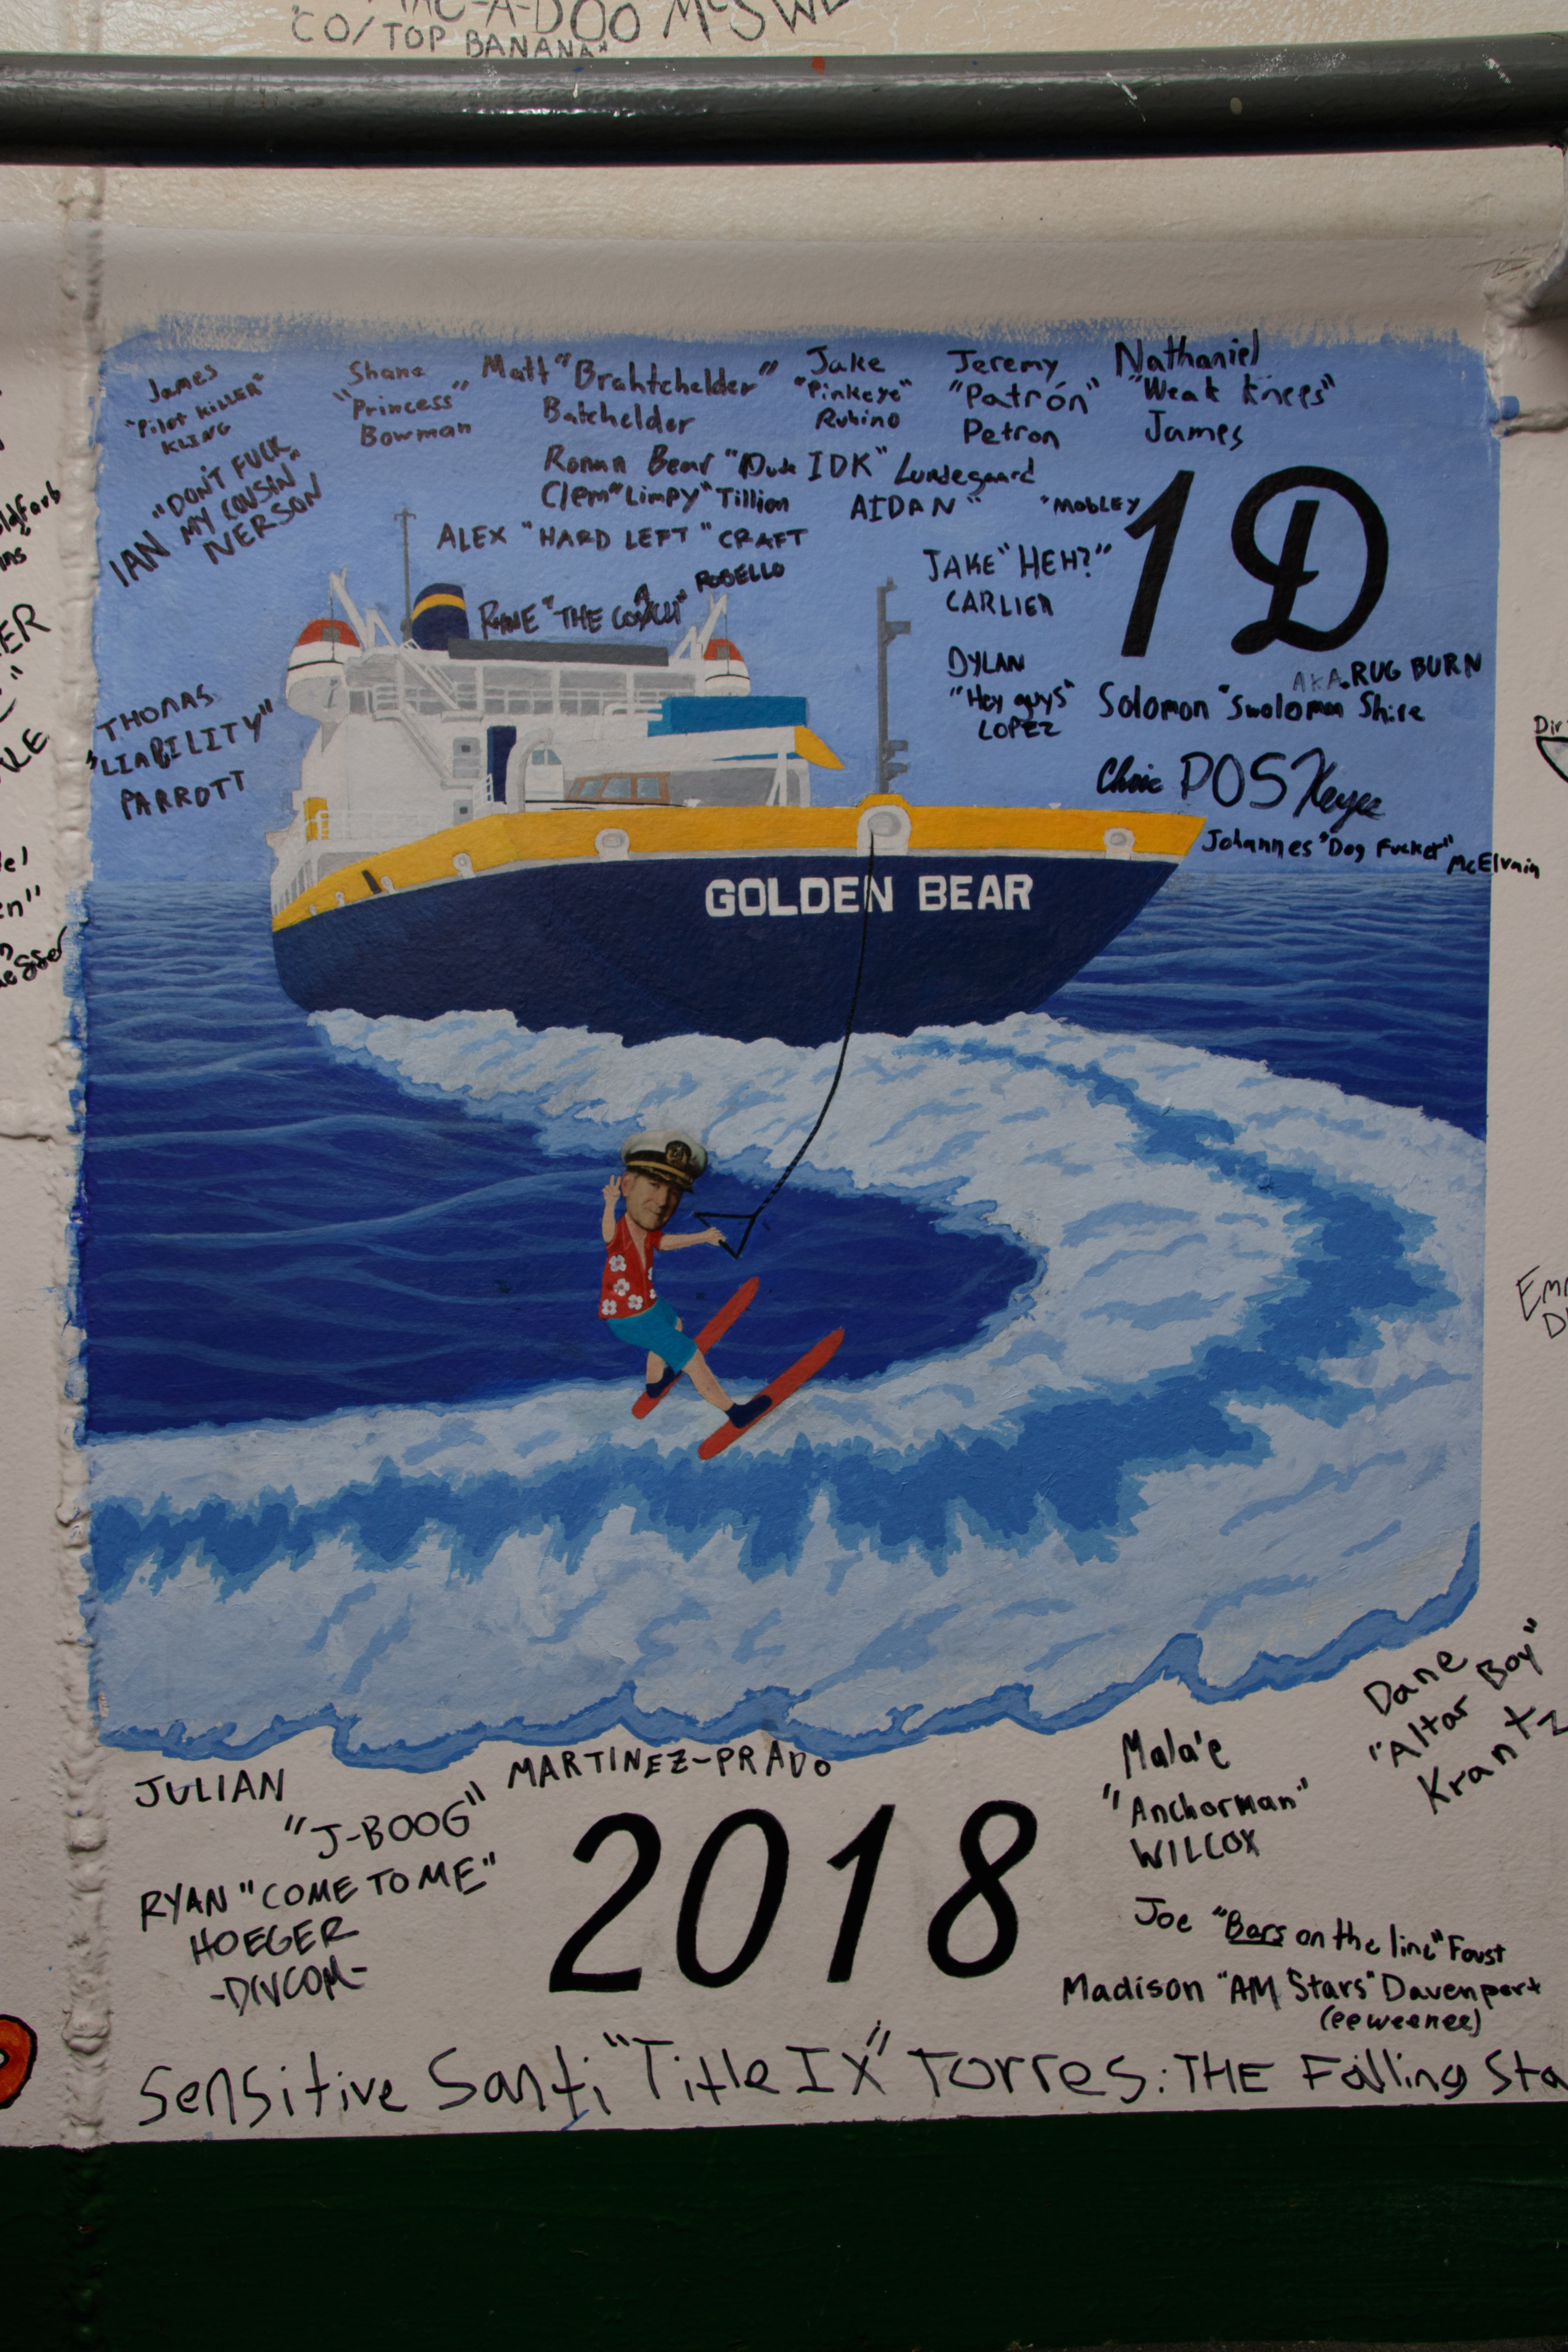 "CO/TOP BANANA"
James
"Pilot KILLER"
KLING
Shane
"Princess"
Bowman
Matt "Brahtchelder"
Batchelder
Jake
"Pinkeye"
Rubino
Jeremy
"Patrón"
Petron
Nathaniel
"Weak Knees"
James
IAN "DON'T FUCK
MY COUSIN"
IVERSON
Ronan Bear "Dude IDK" Lundegaard
Clem "Limpy" Tillion
AIDAN " "MOBLEY
ALEX "HARD LEFT" CRAFT
"THE COACH" ROBELLO
JAKE "HEH?"
CARLIER
1D
DYLAN
"Hey guys"
LOPEZ
AKA. RUG BURN
Solomon "Swolomon Shire
THOMAS
"LIABILITY"
PARROTT
POS
Johannes "Dog Fucker" McElvain
GOLDEN BEAR
Dane
"Altar Boy"
Krantz
JULIAN
"J-BOOG"
MARTINEZ-PRADO
RYAN "COME TO ME"
HOEGER
-DIVCOM-
2018
Mala'e
"Anchorman"
WILCOX
Joe "Bars on the line" Foust
Madison "AM Stars" Davenport
(eeweenee)
Sensitive Santi "Title IX" Torres: THE Falling Sta